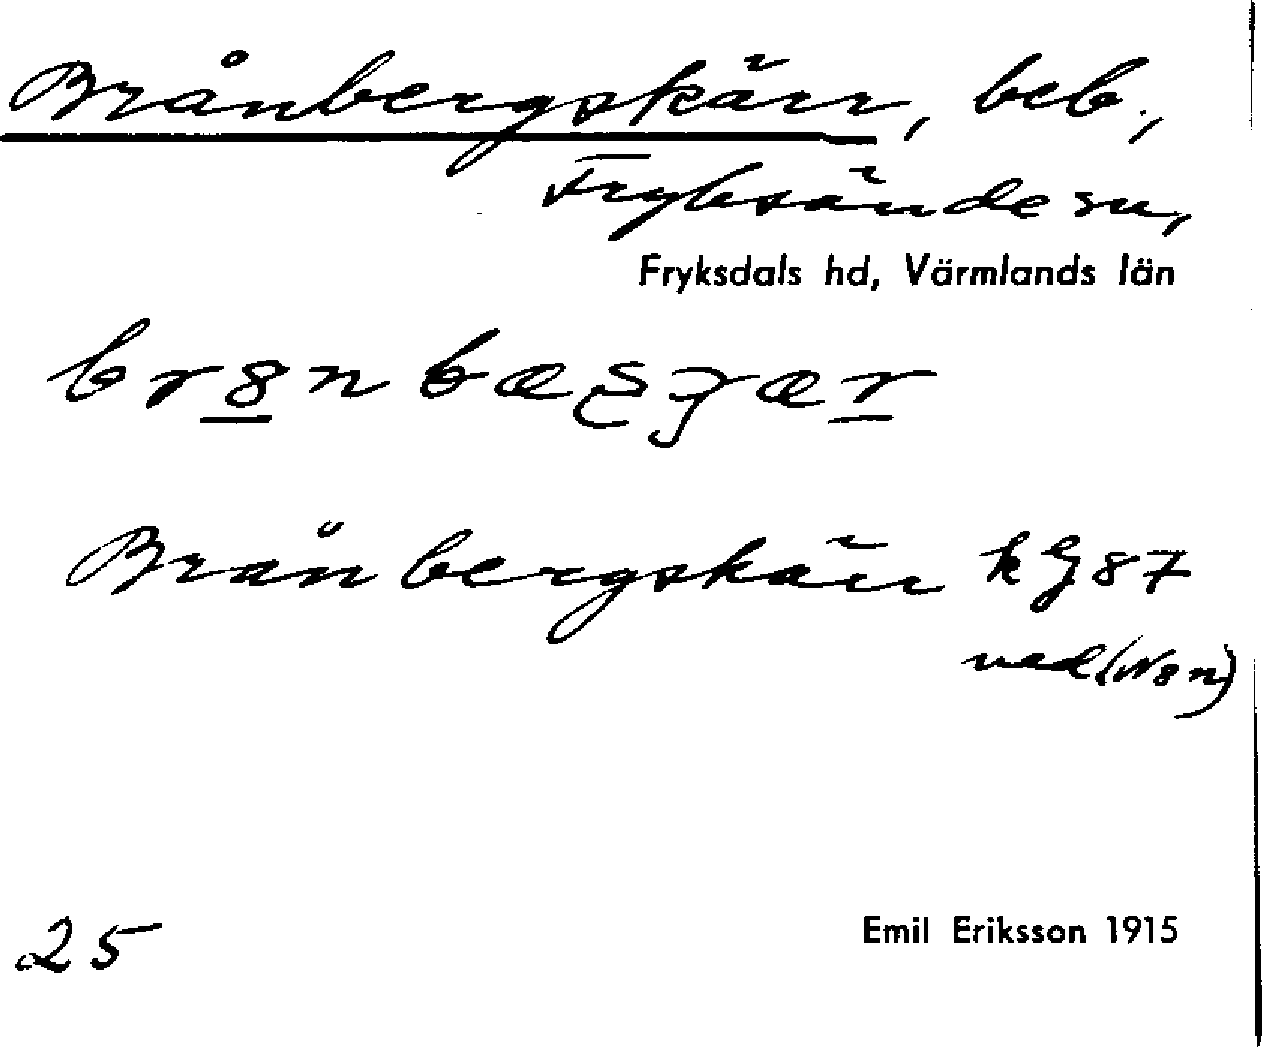 Brånbergskärr, beb.,
Fryksände sn,
Fryksdals hd, Värmlands län
Brånbergskärr kg 87
25
Emil Eriksson 1915